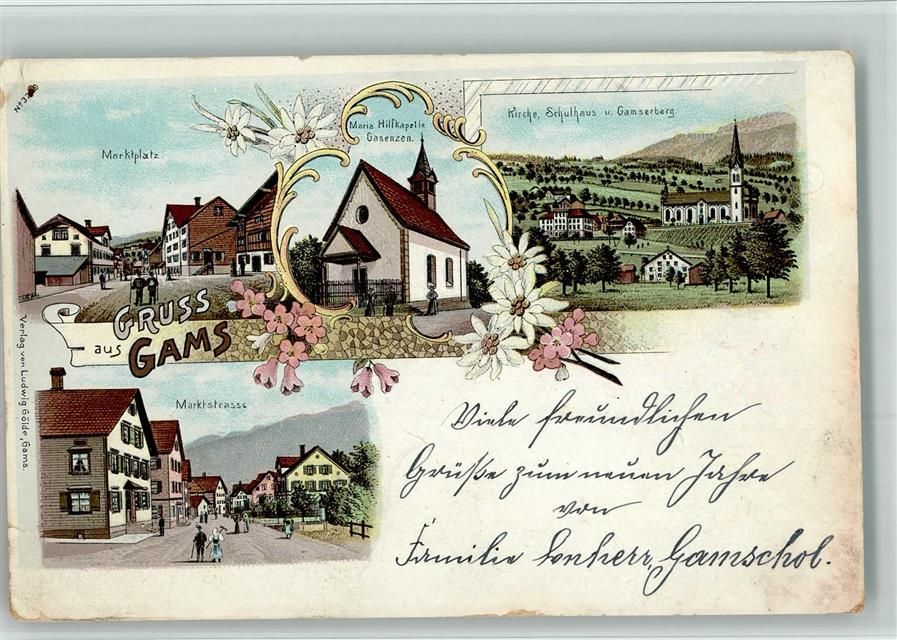 Marktplatz.
Maria Hilfkapelle
Gasenzen.
Kirche, Schulhaus u. Gamserberg.
GRUSS
aus GAMS
Marktstrasse
Verlag von Ludwig Gölde, Gams.
Viele freundlichen
Grüße zum neuen Jahre
von
Familie Lenherr, Gamschol.